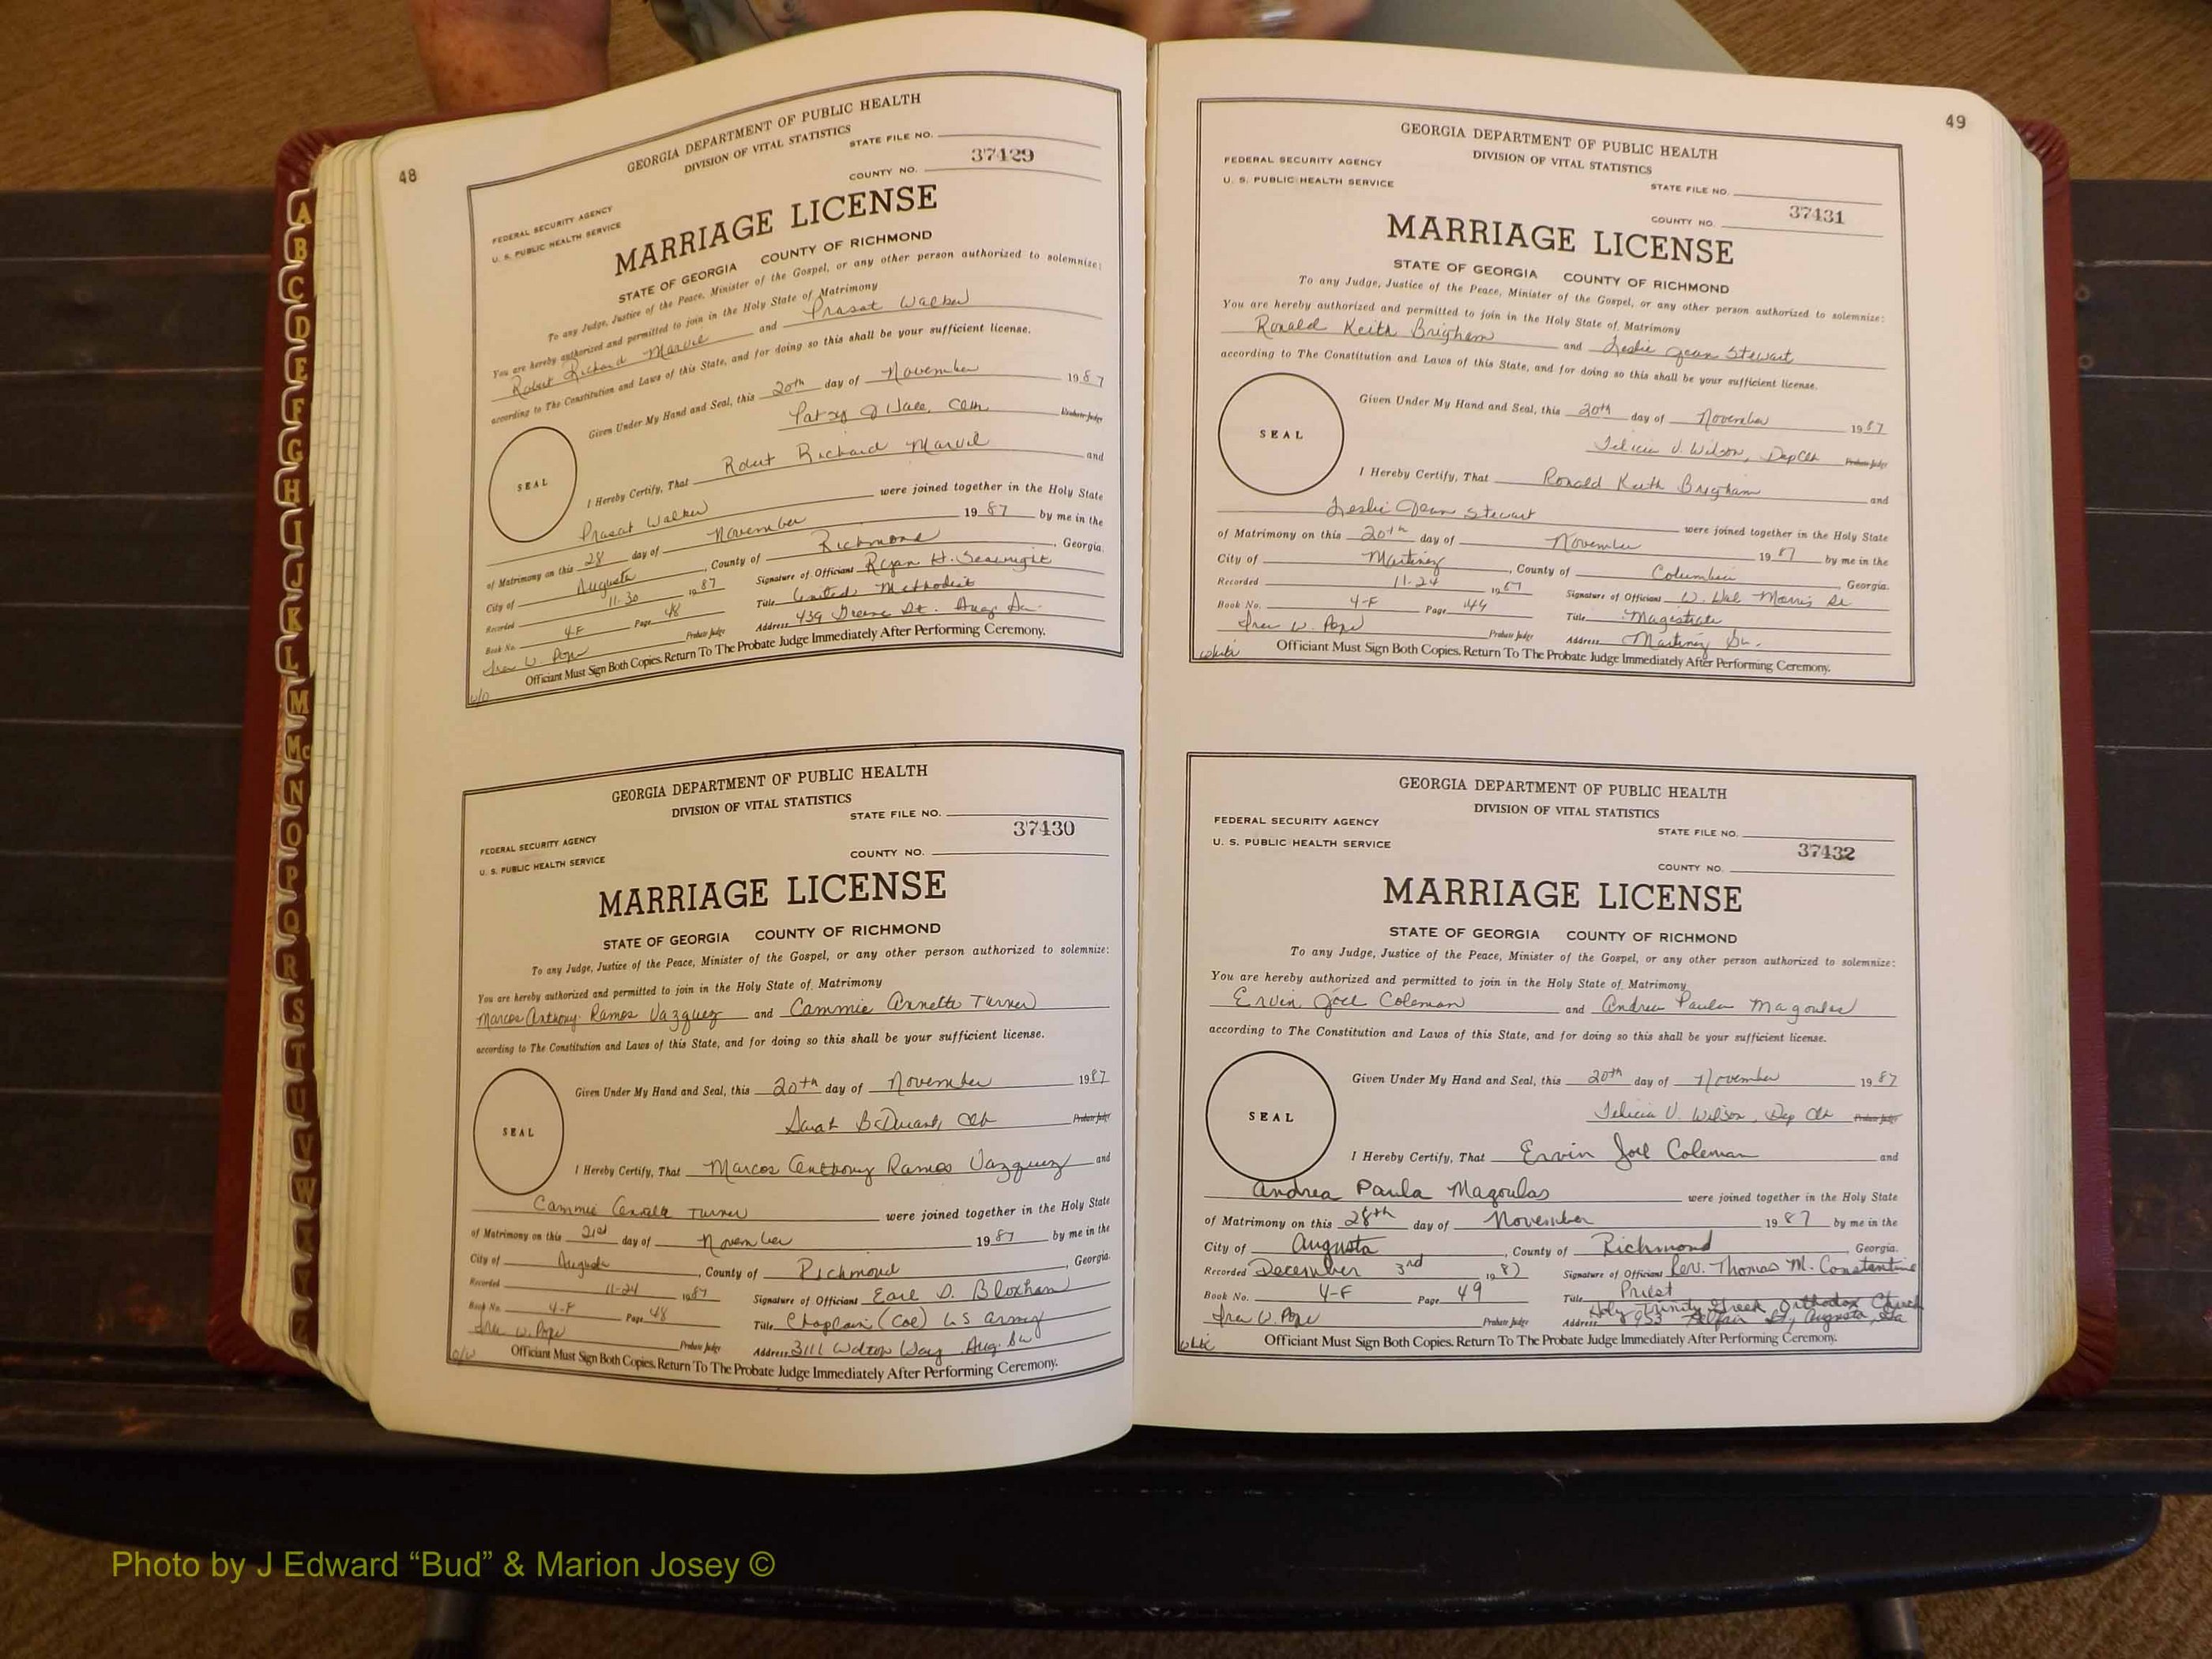 48
GEORGIA DEPARTMENT OF PUBLIC HEALTH
DIVISION OF VITAL STATISTICS
STATE FILE NO.
37429
COUNTY NO.
FEDERAL SECURITY AGENCY
U. S. PUBLIC HEALTH SERVICE
MARRIAGE LICENSE
STATE OF GEORGIA COUNTY OF RICHMOND
To any Judge, Justice of the Peace, Minister of the Gospel, or any other person authorized to solemnize:
You are hereby authorized and permitted to join in the Holy State of Matrimony
Robert Richard Marvil and Prasat Walker
according to The Constitution and Laws of this State, and for doing so this shall be your sufficient license.
Given Under My Hand and Seal, this 20th day of November 1987
Patsy J Hall, Clk Probate Judge
SEAL
I Hereby Certify, That Robert Richard Marvil and
Prasat Walker were joined together in the Holy State
of Matrimony on this 28 day of November 1987 by me in the
City of Augusta, County of Richmond, Georgia.
Recorded 11-30 1987 Signature of Officiant Ryan H. Seawright
Book No. 4-F Page 48 Title United Methodist
Ira W. Pope Probate Judge Address 439 Greene St. Aug. Ga.
Officiant Must Sign Both Copies. Return To The Probate Judge Immediately After Performing Ceremony.
W/O
GEORGIA DEPARTMENT OF PUBLIC HEALTH
DIVISION OF VITAL STATISTICS
STATE FILE NO.
37430
FEDERAL SECURITY AGENCY
COUNTY NO.
U. S. PUBLIC HEALTH SERVICE
MARRIAGE LICENSE
STATE OF GEORGIA COUNTY OF RICHMOND
To any Judge, Justice of the Peace, Minister of the Gospel, or any other person authorized to solemnize:
You are hereby authorized and permitted to join in the Holy State of Matrimony
Marcos Anthony Ramos Vazquez and Cammie Annette Turner
according to The Constitution and Laws of this State, and for doing so this shall be your sufficient license.
Given Under My Hand and Seal, this 20th day of November 1987
Sarah B. Durant, Clk Probate Judge
SEAL
I Hereby Certify, That Marcos Anthony Ramos Vazquez and
Cammie Turner were joined together in the Holy State
of Matrimony on this 21st day of November 1987 by me in the
City of Augusta, County of Richmond, Georgia.
Recorded 11-24 1987 Signature of Officiant Earl D. Bloxham
Book No. 4-F Page 48 Title Chaplain (Col) US Army
Ira W. Pope Probate Judge Address 3111 Walton Way Aug. Ga
Officiant Must Sign Both Copies. Return To The Probate Judge Immediately After Performing Ceremony.
O/W
49
GEORGIA DEPARTMENT OF PUBLIC HEALTH
DIVISION OF VITAL STATISTICS
FEDERAL SECURITY AGENCY
U. S. PUBLIC HEALTH SERVICE
STATE FILE NO.
37431
COUNTY NO.
MARRIAGE LICENSE
STATE OF GEORGIA COUNTY OF RICHMOND
To any Judge, Justice of the Peace, Minister of the Gospel, or any other person authorized to solemnize:
You are hereby authorized and permitted to join in the Holy State of Matrimony
Ronald Keith Brigham and Leslie Jean Stewart
according to The Constitution and Laws of this State, and for doing so this shall be your sufficient license.
Given Under My Hand and Seal, this 20th day of November 1987
Felicia V. Wilson, Dep Clk Probate Judge
SEAL
I Hereby Certify, That Ronald Keith Brigham and
Leslie Jean Stewart were joined together in the Holy State
of Matrimony on this 20th day of November 1987 by me in the
City of Martinez, County of Columbia, Georgia.
Recorded 11-24 1987 Signature of Officiant W. Hal Morris Sr.
Book No. 4-F Page 49 Title Magistrate
Ira W. Pope Probate Judge Address Martinez Ga.
Officiant Must Sign Both Copies. Return To The Probate Judge Immediately After Performing Ceremony.
White
GEORGIA DEPARTMENT OF PUBLIC HEALTH
DIVISION OF VITAL STATISTICS
FEDERAL SECURITY AGENCY
STATE FILE NO.
37432
U. S. PUBLIC HEALTH SERVICE
COUNTY NO.
MARRIAGE LICENSE
STATE OF GEORGIA COUNTY OF RICHMOND
To any Judge, Justice of the Peace, Minister of the Gospel, or any other person authorized to solemnize:
You are hereby authorized and permitted to join in the Holy State of Matrimony
Ervin Joel Coleman and Andrea Paula Magoulas
according to The Constitution and Laws of this State, and for doing so this shall be your sufficient license.
Given Under My Hand and Seal, this 20th day of November 1987
Felicia V. Wilson, Dep Clk Probate Judge
SEAL
I Hereby Certify, That Ervin Joel Coleman and
Andrea Paula Magoulas were joined together in the Holy State
of Matrimony on this 28th day of November 1987 by me in the
City of Augusta, County of Richmond, Georgia.
Recorded December 3rd 1987 Signature of Officiant Rev. Thomas M. Constantine
Book No. 4-F Page 49 Title Priest
Holy Trinity Greek Orthodox Church
Ira W. Pope Probate Judge Address 953 Telfair St, Augusta, Ga
Officiant Must Sign Both Copies. Return To The Probate Judge Immediately After Performing Ceremony.
White
A
B
C
D
E
F
G
H
I
J
K
L
M
Mc
N
O
P
Q
R
S
T
U
V
W
X
Y
Z
Photo by J Edward “Bud” & Marion Josey ©